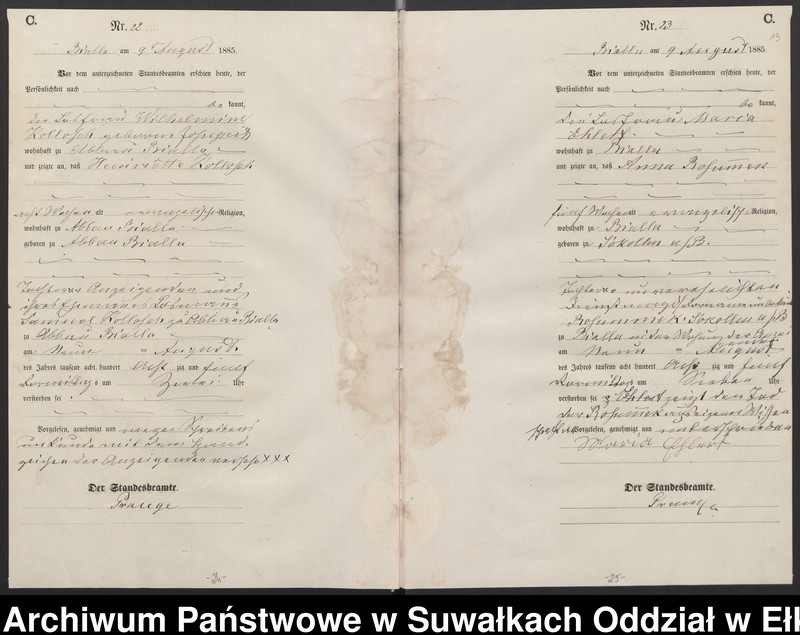 C.
Nr. 22
Bialla am 9 August 1885.
Vor dem unterzeichneten Standesbeamten erschien heute, der
Persönlichkeit nach
be kannt,
die Losfrau Wilhelmine
Kollosch geborene
wohnhaft zu Abbau Bialla
und zeigte an, daß Henriette Kollosch
acht Wochen alt evangelischer Religion,
wohnhaft zu Abbau Bialla
geboren zu Abbau Bialla
Tochter der Anzeigenden und
ihres Ehemannes Losmann
Samuel Kollosch zu Abbau Bialla
zu Abbau Bialla
am Neun August
des Jahres tausend acht hundert acht zig und fünf
Vormittags um Uhr
verstorben sei
Vorgelesen, genehmigt und wegen Schreibens
unkunde mit dem Hand
zeichen der Anzeigenden versehen XXX
Der Standesbeamte.
Prange
-24-
C.
Nr. 23
13
Bialla am 9 August 1885.
Vor dem unterzeichneten Standesbeamten erschien heute, der
Persönlichkeit nach
be kannt,
die Losfrau Maria
Ehlert
wohnhaft zu Bialla
und zeigte an, daß Anna
fünf Wochen alt evangelischer Religion,
wohnhaft zu Bialla
geboren zu
Tochter der unverehelichten
zu Bialla in der Wohnung der
am Neun August
des Jahres tausend acht hundert acht zig und fünf
Vormittags um Sieben Uhr
verstorben sei
der aus eigener Wissen
schaft Vorgelesen, genehmigt und unterschrieben
Maria Ehlert
Der Standesbeamte.
Prange
-25-
Archiwum Państwowe w Suwałkach Oddział w Ełk